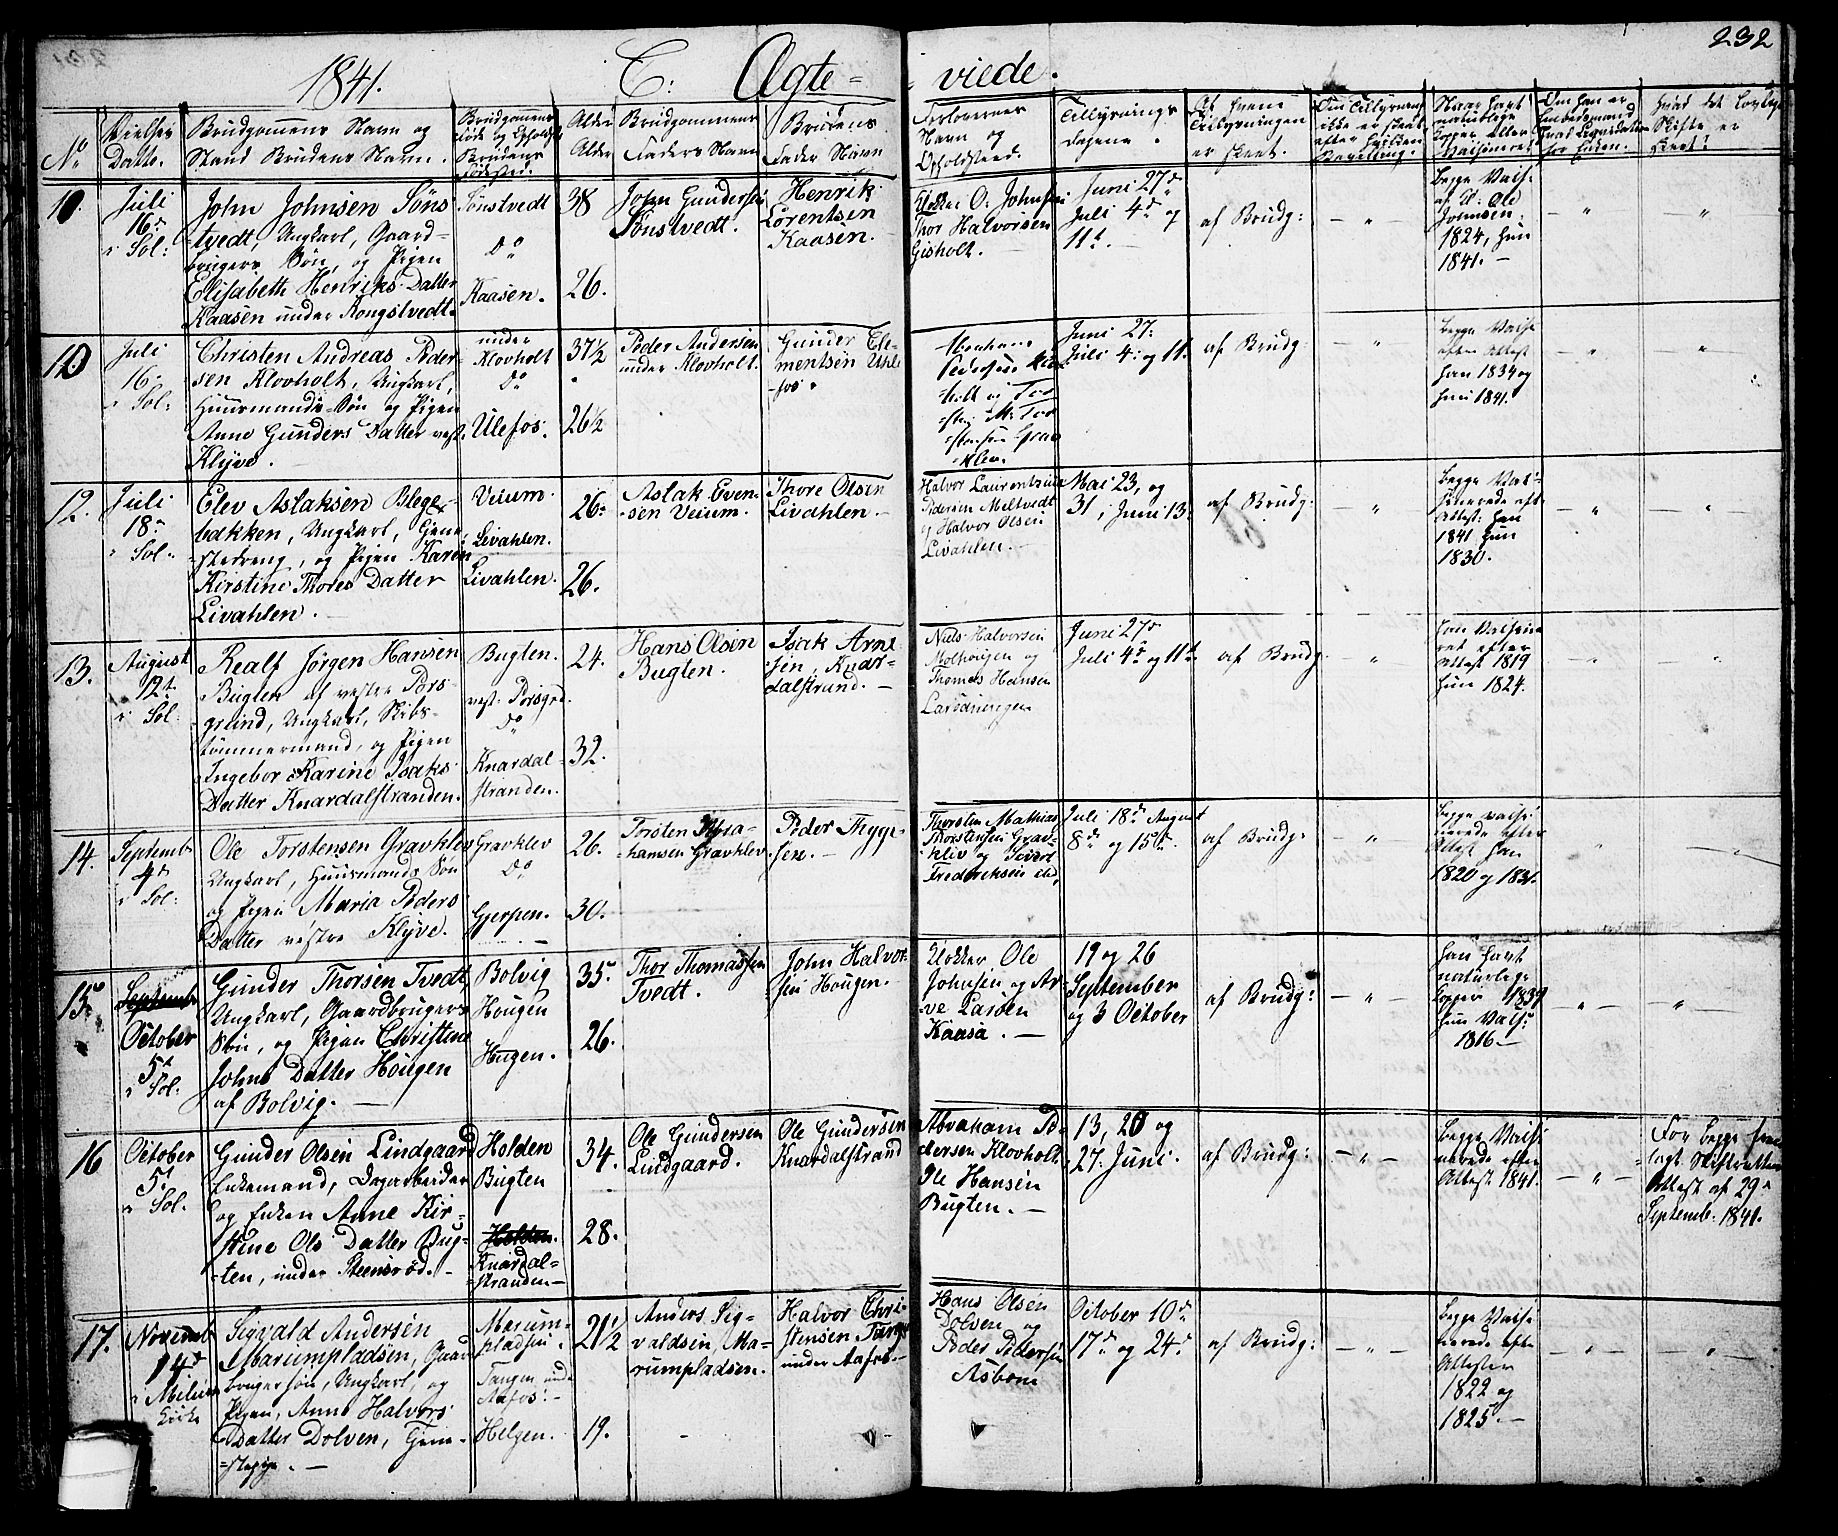 232
1841. C: Ægte- viede.
No
Vielses Datto.
Brudgommens Navn og
Stand Brudens Navn.
Brudgommens
Føde og Opholds
Brudens
Fødested.
Alder
Alder
Brudgommens
Faders Navn
Brudens
Fader Navn
Forlovernes
Navn og
Opholdsted.
Tillysnings
dagene.
Af hvem
Tillysningen
er skeet.
Om Tillysning
ikke er skeet
efter hvilken
Bevilling.
Naar havt
naturlige
Kopper eller
Vaksineret
Om han er
Embedsmand
for Enken.
Hvad det lovlige
Skifte er
skeet?
10.
Juli
16de
i Sol:
John Johnsen Søns
-tvedt, Ungkarl, Gaard-
brugers Søn, og Pigen
Elisabeth Henriks Datter
Kaasen under Rongstvedt.
Sønstvedt
Do
Kaasen.
38
26.
John Gundersen
Sønstvedt.
Henrik
Lorentsen
Kaasen.
Klokker O. Johnsen
Thor Halvorsen
Gisholt.
Juni 27de
Juli 4de og
11te
af Brudg:
Begge Vaks:
af Kl: Ole
Johnsen
1824, hun
1841.
10
Juli
16.
i Sol:
Christen Andreas Peder-
sen Klovholt, Ungkarl,
Huusmands Søn og Pigen
Anne Gunders Datter vest.
Klyve.
under
Klovholt
Do
Ulefos.
37½
26½
Peder Andersen
under Klovholt.
Gunder Cle-
mentsen Ule
fos.
Abraham
Pedersen Klov
holt og Tor
sten M. Tor
stensen Grav
klev.
Juni 27:
Juli 4: og 11.
af Brudg:
Begge Vaksi
efter Attest
han 1834 og
hun 1841.
12.
Juli
18de
i Sol:
Elev Aslaksen Blege-
bakken, Ungkarl, Tjene-
stedreng, og Pigen Karen
Kirstine Thores Datter
Livahlen.
Veium.
Livahlen.
Livahlen.
26.
26.
Aslak Even-
sen Veium.
Thore Olsen
Livahlen.
Halvor Laurentsius
Pedersen Meltvedt
og Halvor Olsen
Livahlen.
Mai 23, og
31, Juni 13:
af Brudg:
Begge Vak-
sinerede eft
Attest: han
1841 hun
1830.
13.
August
12te
i Sol:
Realf Jørgen Hansen
Bugten af vestre Pors-
grund, Ungkarl, Skibs-
tømmermand, og Pigen
Ingebor Karine Isaks
Datter Knardalstranden.
Bugten.
vest: Porsgrd.
Do
Knardal-
stranden.
24.
32.
Hans Olsen
Bugten.
Isak Arne
sen, Knar-
dalstrand.
Niels Halvorsen
Molhougen og
Thomas Hansen
Juni 27de
Juli 4de og 11te
af Brudg.
han Vaksine
ret efter
Attest 1819
hun 1824.
14.
Septemb
4de
i Sol:
Ole Torstensen Gravklev
Ungkarl, Huusmands Søn
og Pigen Maria Peders
Datter vestre Klyve.
Gravklev
Do
Gjerpen.
26.
30.
Torsten Abra
hamsen Gravklev
Peder Thyge-
sen.
Thorsten Mathias
Thorstensen Grav-
kliv og
Frederiksen
Juli 18de August
8de og 15de
af Brudg:
Begge vaksi
nerede efter
Attest han
1820 og 1831.
15.
Septemb
October
5te
i Sol:
Gunder Thorsen Tvedt
Ungkarl, Gaardbrugers
Søn, og Pigen Christine
Johns Datter Hougen
af Bolvig.
Bolvig
Hougen
Hugen.
35.
26.
Thor Thomassen
Tvedt.
John Halvor-
sen Hougen.
Klokker Ole
Johnsen og Ar
ve Larsen
Kaasa.
19 og 26
September
og 3 October
af Brudg:
han havt
naturlege
Kopper 1839
hun Vaks:
1816
16
October
5te
i Sol.
Gunder Olsen Lindgaard
Enkemand, Dagarbeider
og Enken Anne Kir-
stine Ols Datter Bug-
ten, under Steensrød.
Holden
Bugten
Holden.
Knardal-
stranden
34.
28.
Ole Gundersen
Lindgaard.
Ole Gundersen
Knardalstrand
Abraham Pe
dersen Klovholt
Ole Hansen
Bugten.
13, 20 og
27: Juni.
af Brudg:
Begge Vaksi
nerede efter
Attest 1841.
For begge frem
lagt Skifterettens
Attest af 29de
Septemb: 1841.
17.
Novemb
14de
i Melum
Kirke
Sigvald Andersen
Marumpladsen, Gaard
bruger søn, Ungkarl, og
Pigen, Anne Halvors
Datter Dolven, Tjene-
stepige.
Marum-
pladsen.
Tangen under
Aafos.
Helgen.
21½
19.
Anders Sig-
valdsen, Ma-
rumpladsen.
Halvor Chri-
stensen Tangen
under Aafos
Hans Olsen
Dolven og
Peder Pedersen
Asbom
October 10de
17de og 24de
af Brudg:
Begge Vaksi
nerede efter
Attester
1822 og
1825.